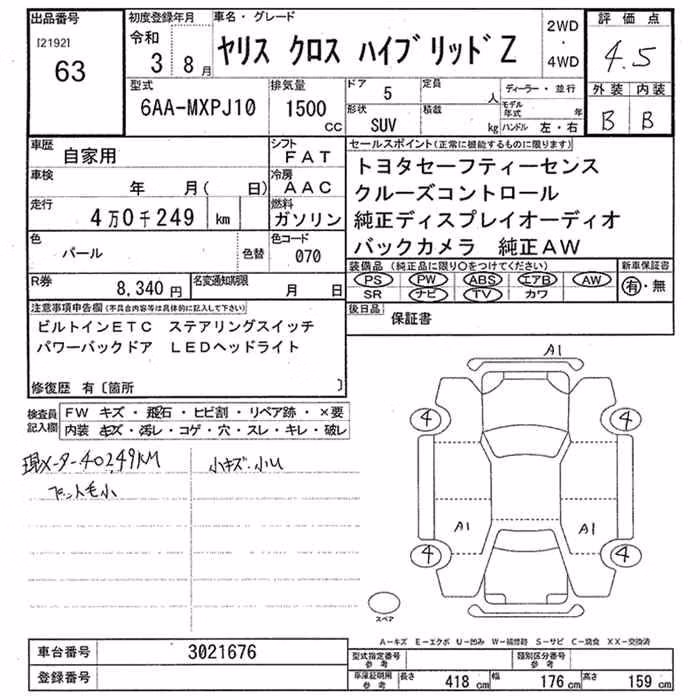 出品番号
[2192]
63
初度登録年月
令和
3 8月
車名・グレード
ヤリス クロス ハイブリッドZ
2WD
・
4WD
評価点
4.5
外装 内装
B B
型式
6AA-MXPJ10
排気量
1500
cc
ドア
5
定員
人
形状
SUV
積載
kg
ディーラー・並行
モデル年式 年
ハンドル 左・右
車歴
自家用
シフト
FAT
車検
年 月( 日)
冷房
AAC
走行
4万0千249 km
燃料
ガソリン
色
パール
色替
色コード
070
R券
8,340円
名変通知期限
月 日
セールスポイント(正常に機能するものに限ります)
トヨタセーフティーセンス
クルーズコントロール
純正ディスプレイオーディオ
バックカメラ 純正AW
装備品(純正品に限り○をつけてください)
PS PW ABS エアB AW
SR ナビ TV カワ
新車保証書
有・無
後日品
保証書
注意事項申告欄(不具合内容等は具体的に記入して下さい)
ビルトインETC ステアリングスイッチ
パワーバックドア LEDヘッドライト
修復歴 有〔箇所 〕
検査員記入欄
FW キズ・飛石・ヒビ割・リペア跡・×要
内装 キズ・汚レ・コゲ・穴・スレ・キレ・破レ
現メーター40249KM
小キズ.小U
マット毛小
A1
4
4
A1
A1
4
4
スペア
A-キズ E-エクボ U-凹み W-補修跡 S-サビ C-腐食 XX-交換済
車台番号
3021676
登録番号
型式指定番号
参考
類別区分番号
参考
車庫証明用
参考
長さ 418 cm 幅 176 cm 高さ 159 cm